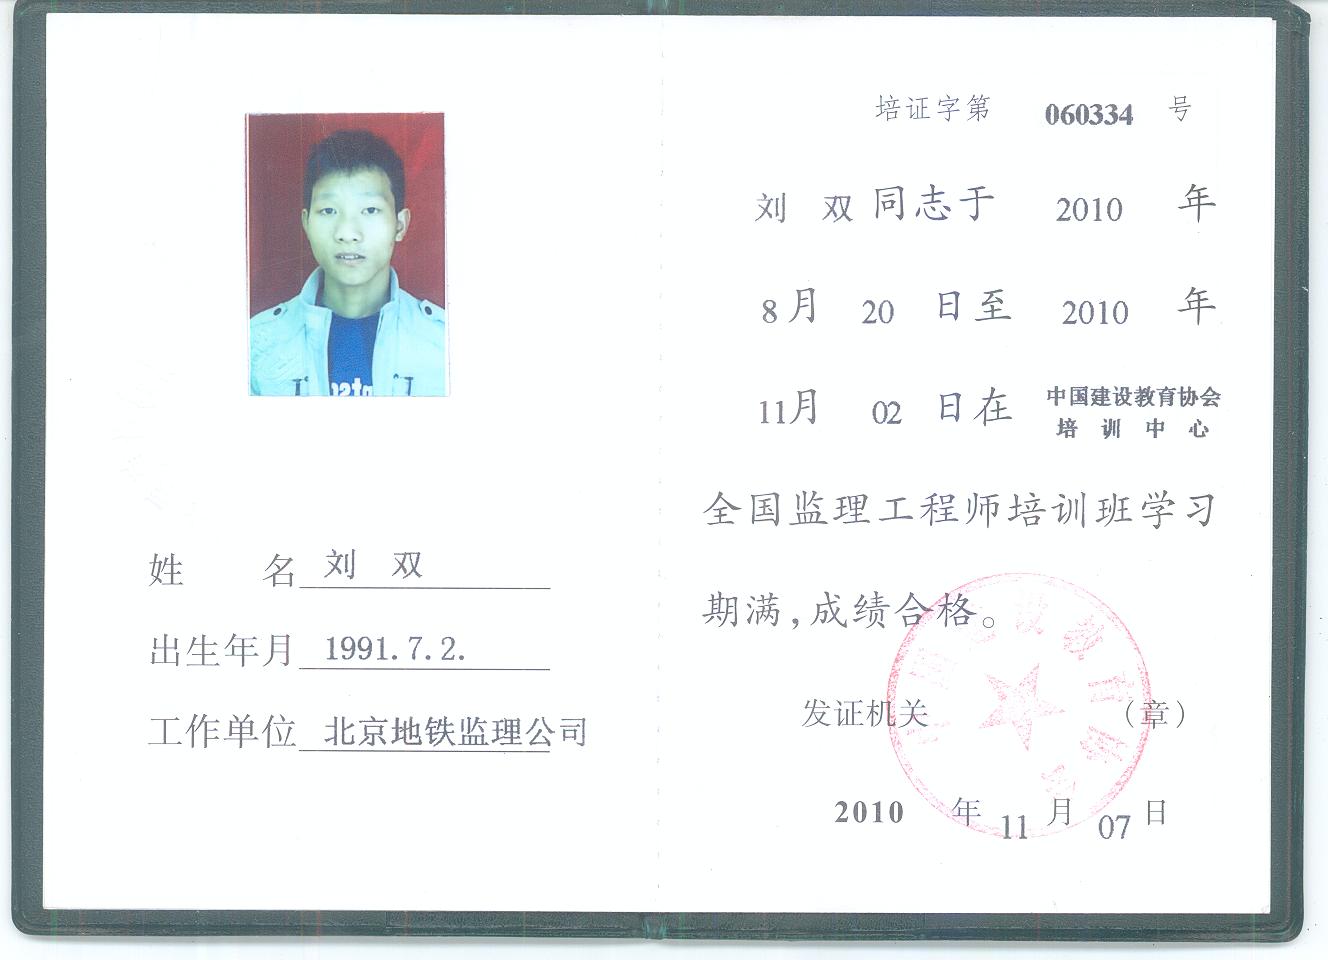 姓 名 刘 双
出生年月 1991.7.2.
工作单位 北京地铁监理公司
培证字第 060334 号
刘 双 同志于 2010 年
8月 20 日至 2010 年
11月 02 日在 中国建设教育协会
培 训 中 心
全国监理工程师培训班学习
期满,成绩合格。
发证机关 （章）
2010 年 11 月 07 日